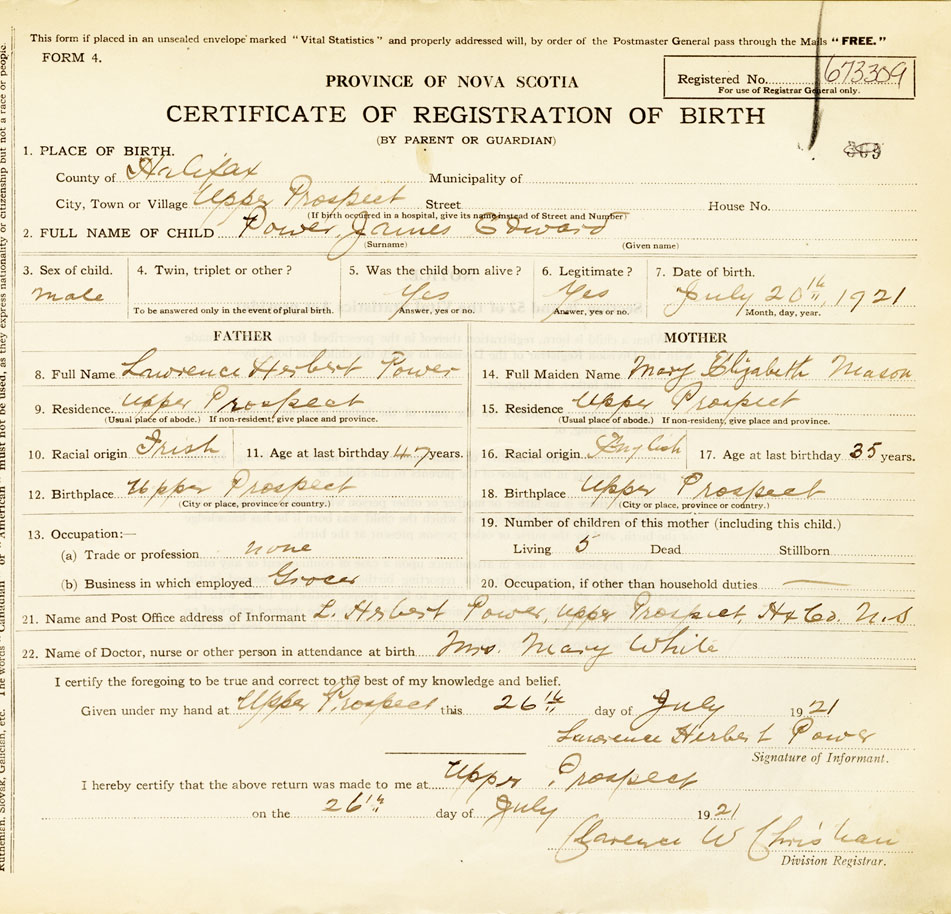 This form if placed in an unsealed envelope marked "Vital Statistics" and properly addressed will, by order of the Postmaster General pass through the Mails "FREE."
FORM 4.
PROVINCE OF NOVA SCOTIA
Registered No. 673309
For use of Registrar General only.
CERTIFICATE OF REGISTRATION OF BIRTH
(BY PARENT OR GUARDIAN)
1. PLACE OF BIRTH.
County of Halifax Municipality of
City, Town or Village Upper Prospect Street House No.
(If birth occurred in a hospital, give its name instead of Street and Number)
2. FULL NAME OF CHILD Power, James Edward
(Surname) (Given name)
3. Sex of child. 4. Twin, triplet or other? 5. Was the child born alive? 6. Legitimate? 7. Date of birth.
Male Yes Yes July 20th, 1921
To be answered only in the event of plural birth. Answer, yes or no. Answer, yes or no. Month, day, year.
FATHER MOTHER
8. Full Name Lawrence Herbert Power 14. Full Maiden Name Mary Elizabeth Mason
9. Residence Upper Prospect 15. Residence Upper Prospect
(Usual place of abode.) If non-resident, give place and province. (Usual place of abode.) If non-resident, give place and province.
10. Racial origin Irish 11. Age at last birthday 47 years. 16. Racial origin English 17. Age at last birthday 35 years.
12. Birthplace Upper Prospect 18. Birthplace Upper Prospect
(City or place, province or country.) (City or place, province or country.)
13. Occupation:— 19. Number of children of this mother (including this child.)
(a) Trade or profession none Living 5 Dead Stillborn
(b) Business in which employed Grocer 20. Occupation, if other than household duties —
21. Name and Post Office address of Informant L. Herbert Power, Upper Prospect, Hx Co. N.S
22. Name of Doctor, nurse or other person in attendance at birth Mrs. Mary White
I certify the foregoing to be true and correct to the best of my knowledge and belief.
Given under my hand at Upper Prospect this 26th day of July 1921
Lawrence Herbert Power
Signature of Informant.
I hereby certify that the above return was made to me at Upper Prospect
on the 26th day of July 1921
Clarence W Christian
Division Registrar.
Ruthenian, Slovak, Galician, etc. The words "Canadian" or "American" must not be used, as they express nationality or citizenship but not a race or people.